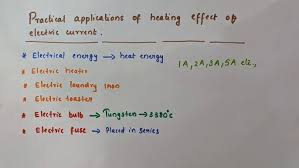 Practical applications of heating effect of
electric current.
* Electrical energy → heat energy
1A, 2A, 3A, 5A etc,
* Electric heater
* Electric laundry iron
* Electric toaster
* Electric bulb → Tungsten → 3380°c
* Electric fuse → Placed in series